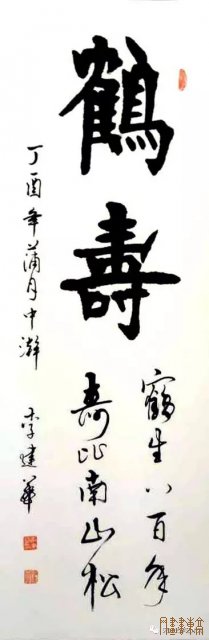 鶴壽
鶴生八百年
壽比南山松
丁酉年蒲月中澣
李建華